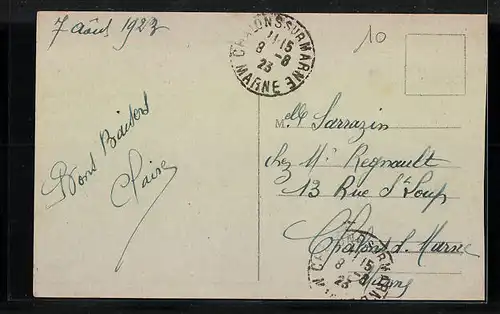 7 Août 1923
10
CHALONS SUR MARNE
11-15
8 -8
23
MARNE
Bons Baisers
Claire
Mlle Sarrazin
chez Mr Regnault
13 Rue St Loup
Chalons s. Marne
Marne
CHALONS SUR MARNE
15
8 -8
23